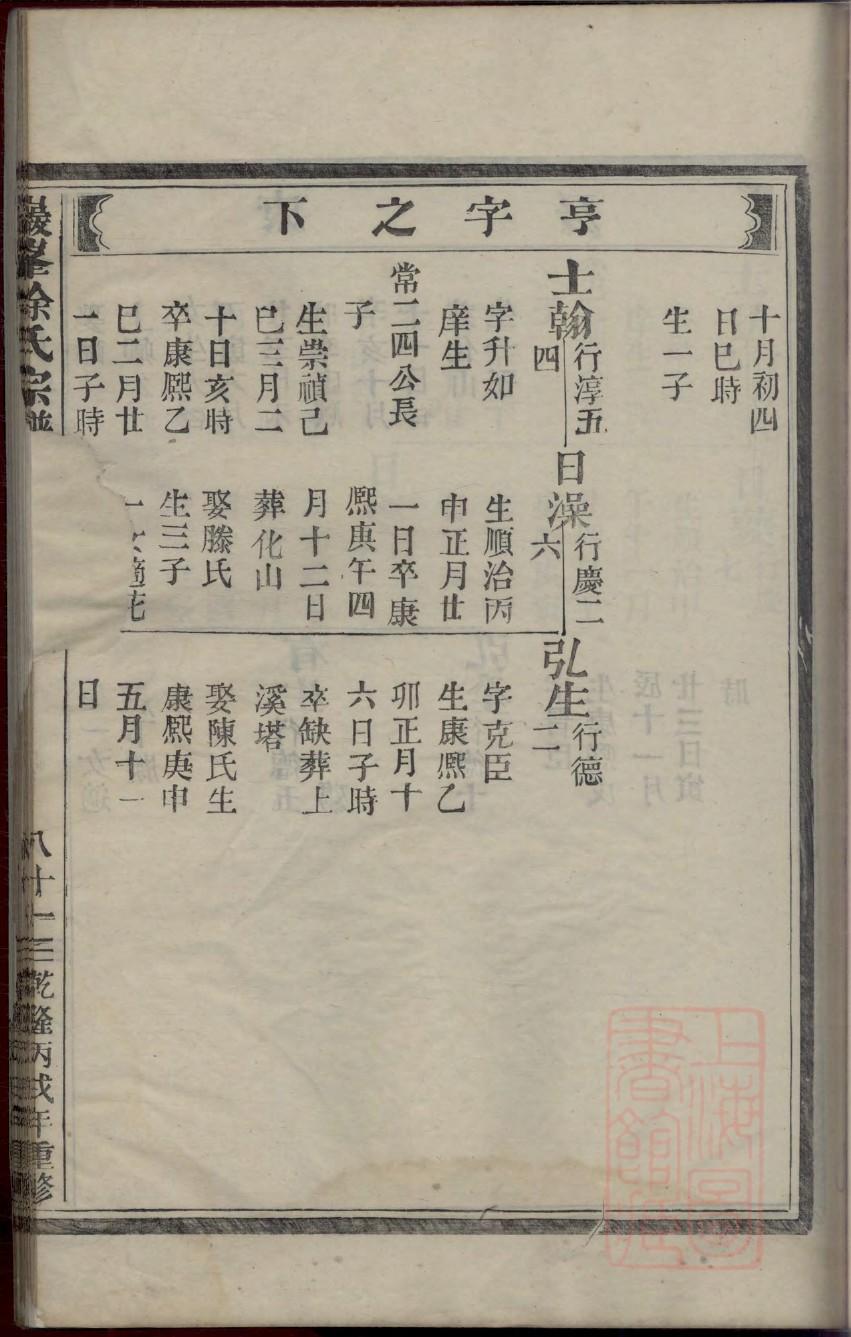 亨字之下
十月初四
日巳時
生一子
士翰行淳五
四
字升如
庠生
常二四公長
子
生崇禎己
巳三月二
十日亥時
卒康熙乙
巳二月廿
一日子時
日澡行慶二
六
生順治丙
申正月廿
一日卒康
熙庚午四
月十二日
葬化山
娶滕氏
生三子
一女適花
弘生行德
二
字克臣
生康熙乙
卯正月十
六日子時
卒缺葬上
溪塔
娶陳氏生
康熙庚申
五月十一
日
徐氏宗譜
乾隆丙戌年重修
上海圖書館藏